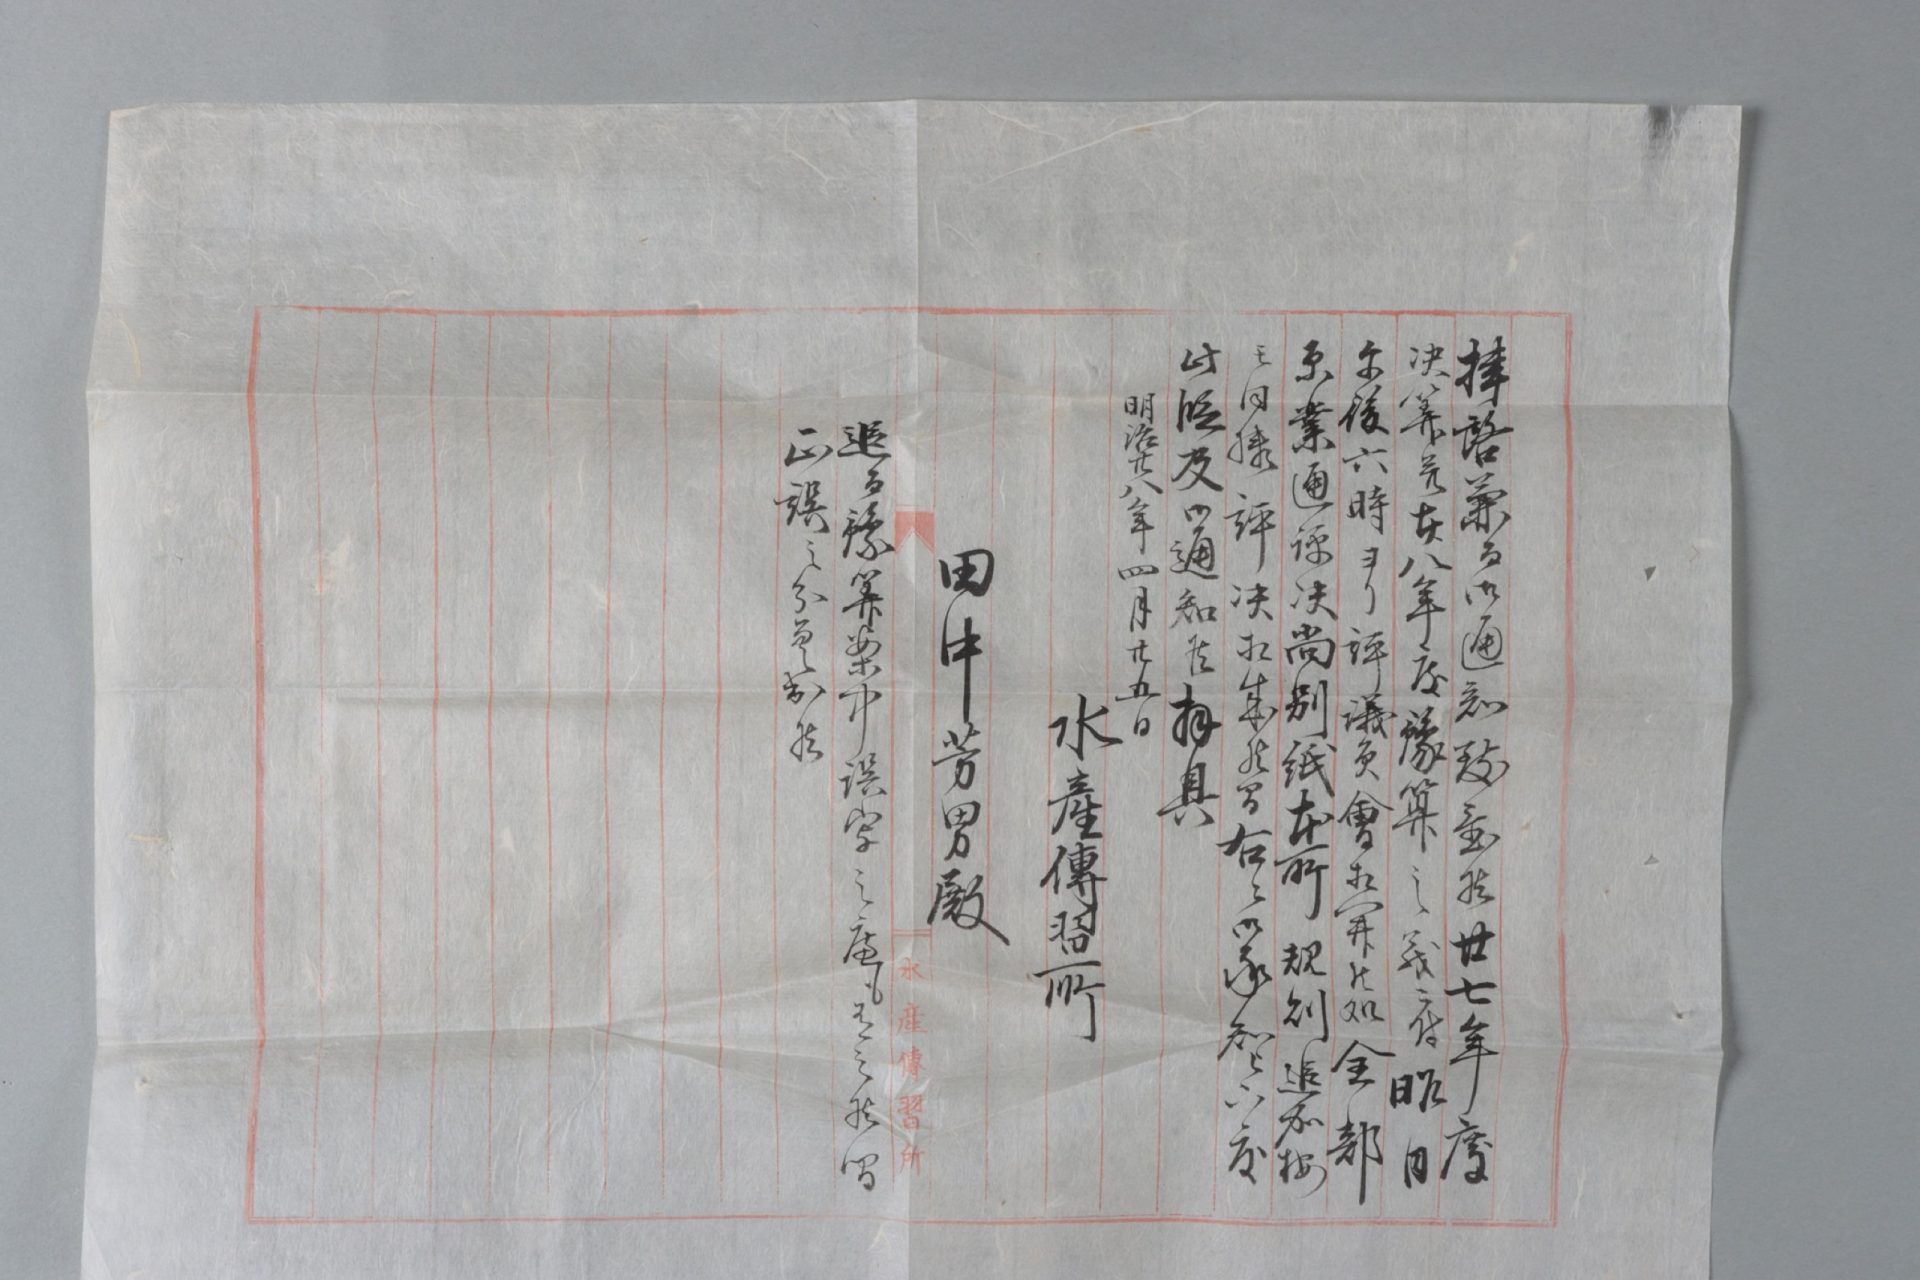 拝啓兼而御通知致置候廿七年度
決算並廿八年度豫算之義ニ付昨日
午後六時ヨリ評議員會相開候処全部
原業通評決尚別紙本所規則追加按
モ同様評決相成候間右ニ御承知
此段及御通知候拝具
明治廿八年四月廿五日
水産傳習所
田中芳男殿
追而豫算案中誤字之廉も有之候間
正誤之分差出候
水産傳習所